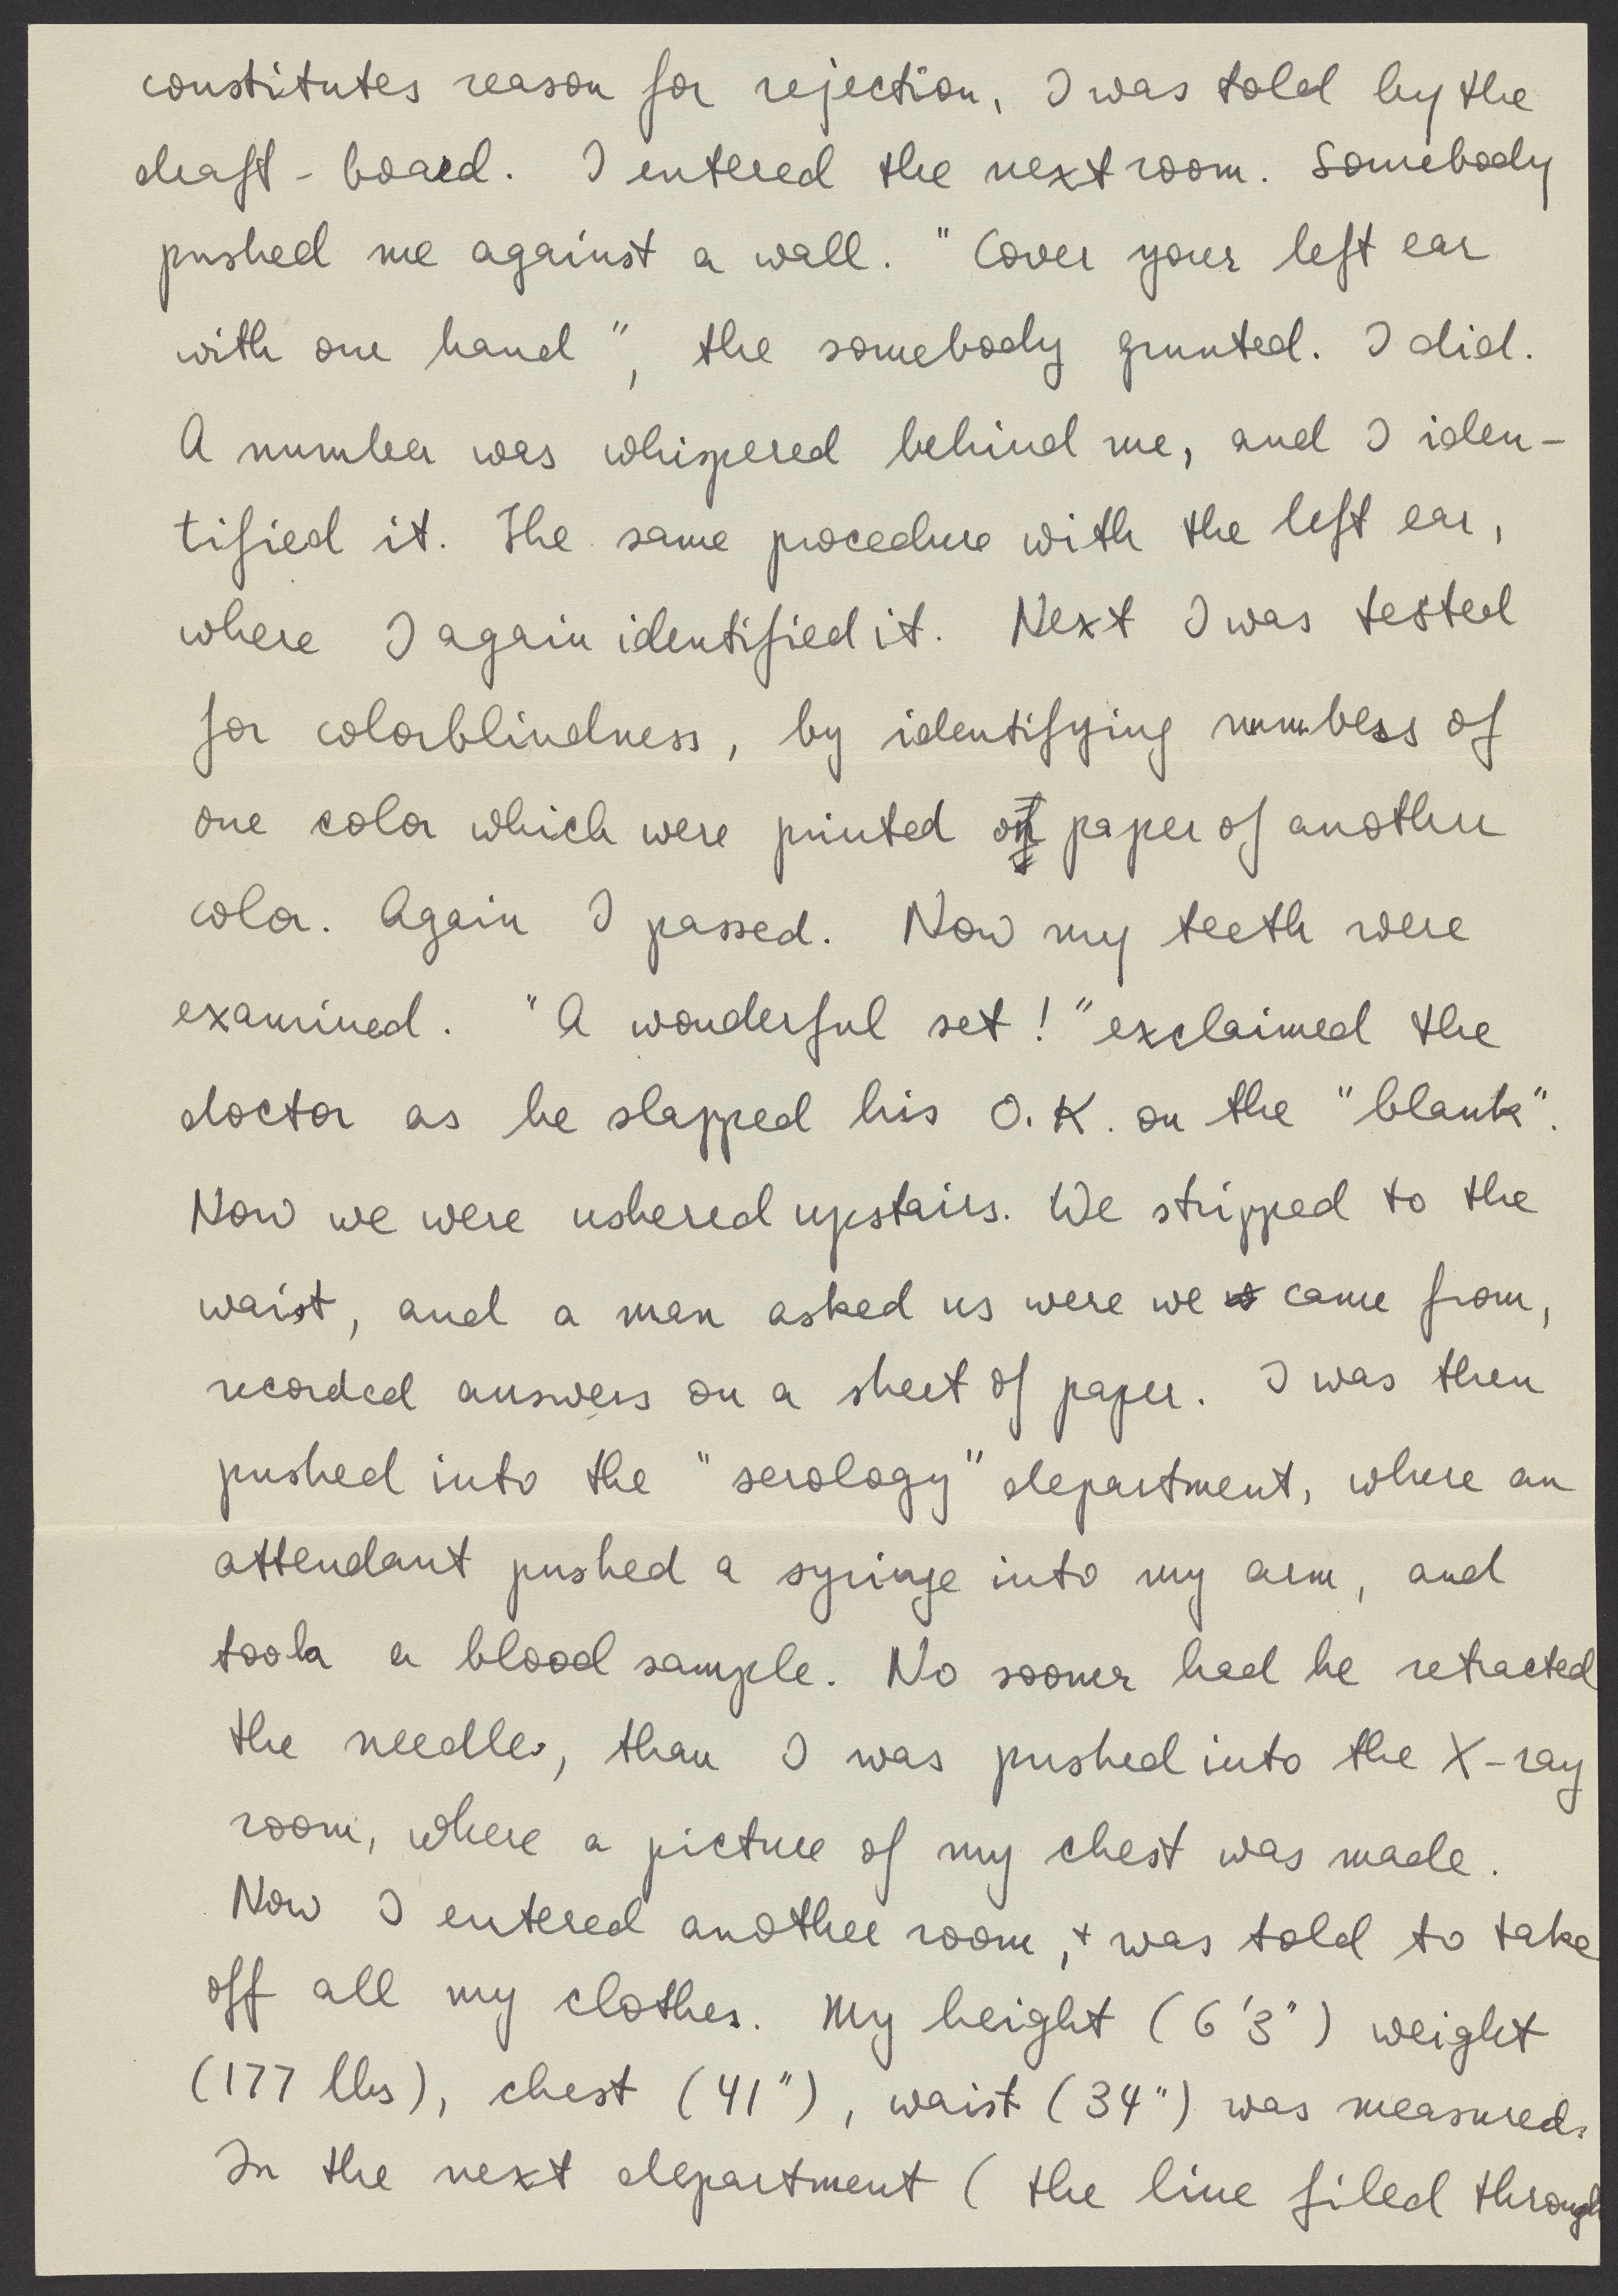 constitutes reason for rejection, I was told by the
draft-board. I entered the next room. Somebody
pushed me against a wall. "Cover your left ear
with one hand", the somebody grunted. I did.
A number was whispered behind me, and I iden-
tified it. The same procedure with the left ear,
where I again identified it. Next I was tested
for colorblindness, by identifying numbers of
one color which were printed on paper of another
color. Again I passed. Now my teeth were
examined. "A wonderful set!" exclaimed the
doctor as he slapped his O.K. on the "blank".
Now we were ushered upstairs. We stripped to the
waist, and a man asked us were we came from,
recorded answers on a sheet of paper. I was then
pushed into the "serology" department, where an
attendant pushed a syringe into my arm, and
took a blood sample. No sooner had he retracted
the needle, than I was pushed into the X-ray
room, where a picture of my chest was made.
Now I entered another room, + was told to take
off all my clothes. My height (6'3") weight
(177 lbs), chest (41"), waist (34") was measured.
In the next department (the line filed through